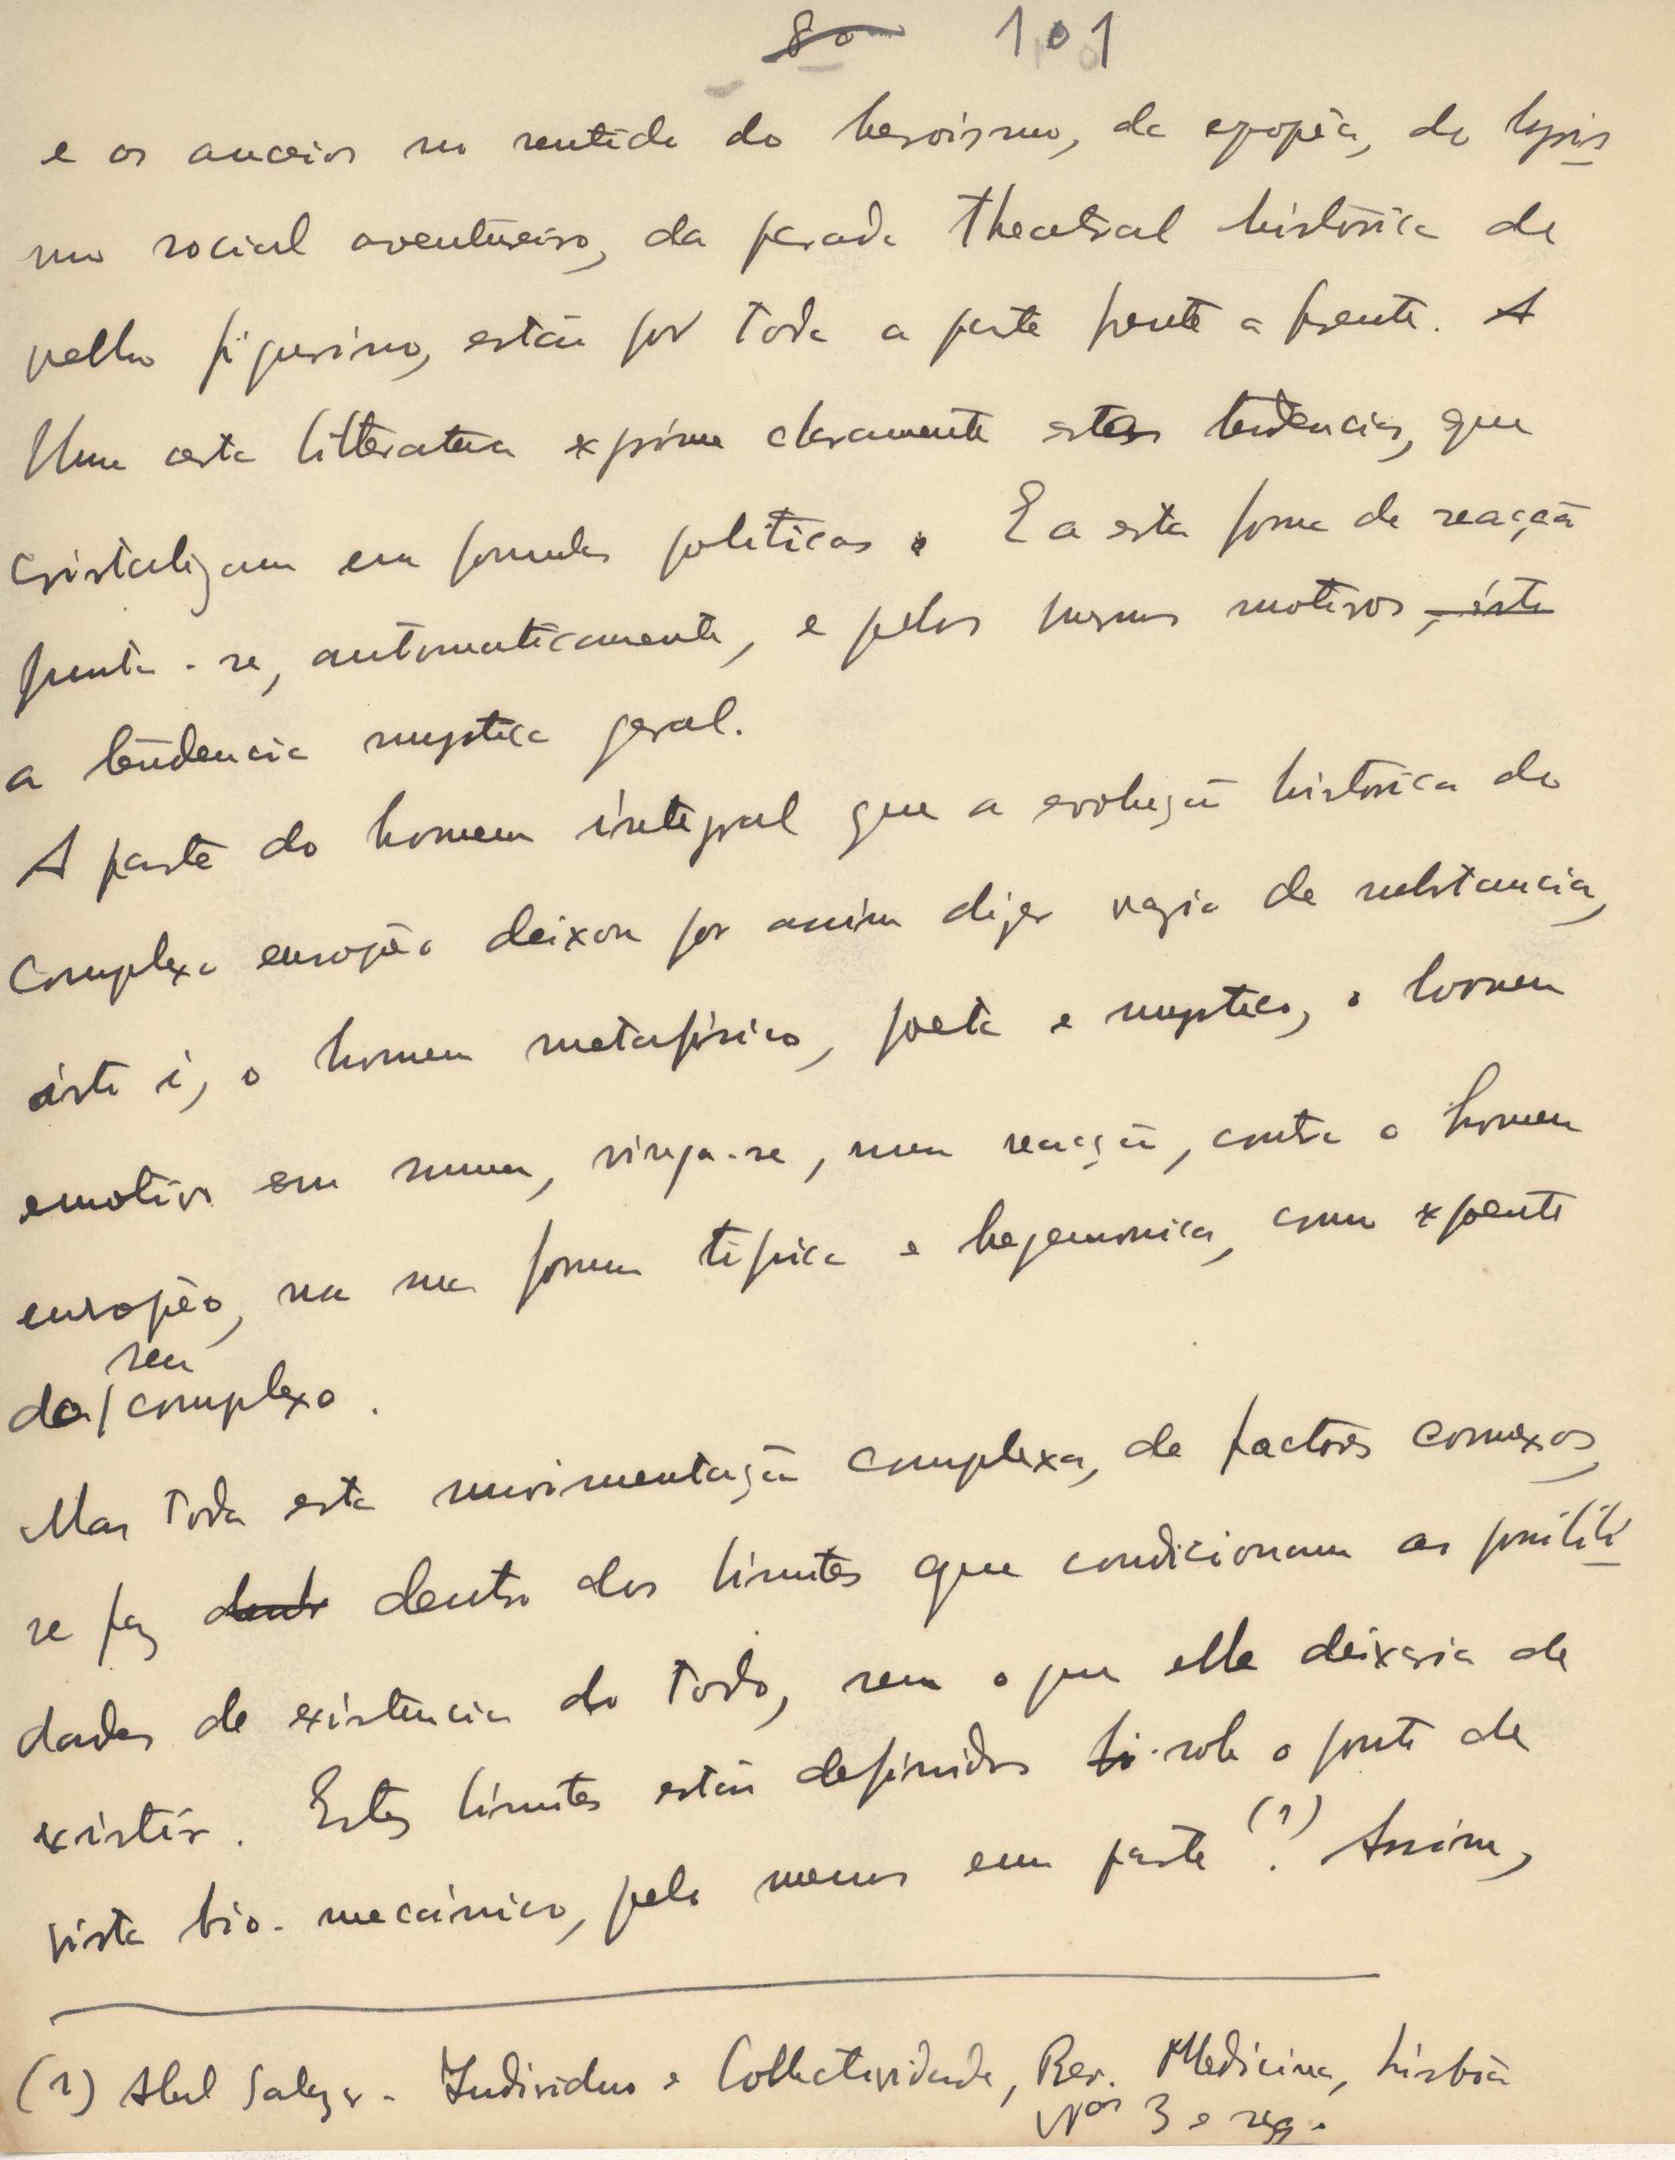 80 101
e os anceios no sentido do heroismo, da epopêa, do lyris
mo social aventureiro, da parada theatral historica de
velho figurino, estão por toda a parte frente a frente. A
Uma certa litteratura exprime claramente estas tendencias, que
cristalizam em formulas politicas. E a esta forma de reacção
junta-se, automaticamente, e pelos mesmos motivos, isto
a tendencia mystica geral.
A parte do homem integral que a evolução historica do
complexo europêo deixou por assim dizer vazia de substancia,
isto é, o homem metafisico, poeta e mystico, o homem
emotivo em suma, vinga-se, numa reacção, contra o homem
europêo, na sua forma tipica e hegemonica, como expoente
do seu complexo.
Mas toda esta movimentação complexa, de factores connexos,
se faz dentro dentro dos limites que condicionam as possibili
dades de existencia do todo, sem o que elle deixaria de
existir. Estes limites estão definidos sob o ponto de
vista bio-mecánico, pelo menos em parte (1). Assim,
(1) Abel Salazar - Individuo e Collectividade, Rev. Medicina, Lisbôa
Nos 3 e seg.